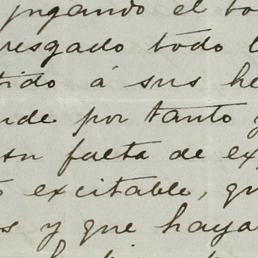 jugando el bo
resgado todo l
tido á sus he
nde por tanto y
su falta de ex
excitable, qu
s y que haya